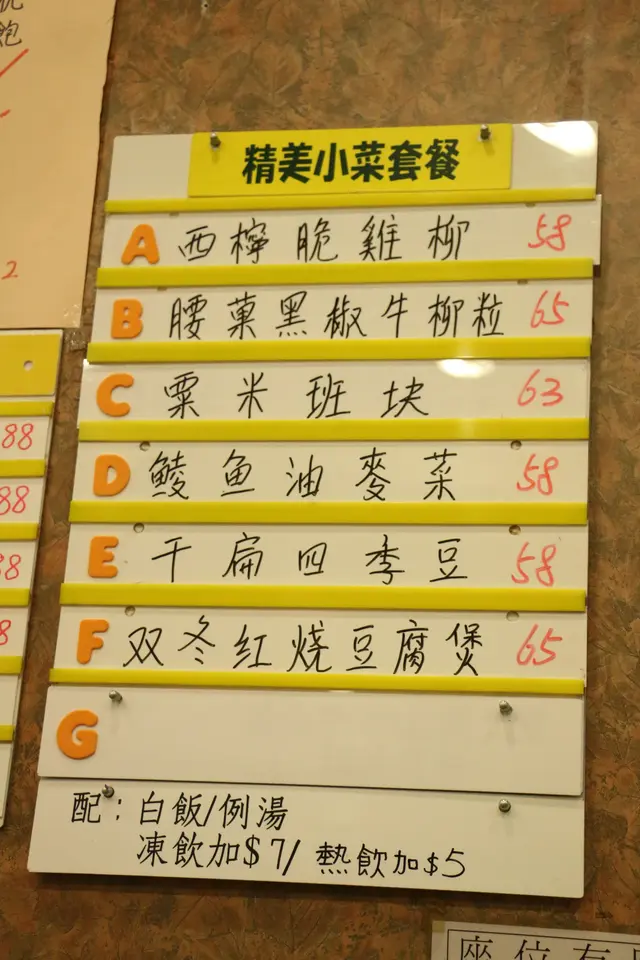 飽
2
88
88
88
8
精美小菜套餐
A 西檸脆雞柳 58
B 腰菓黑椒牛柳粒 65
C 粟米班块 63
D 鯪鱼油麥菜 58
E 干扁四季豆 58
F 双冬红燒豆腐煲 65
G
配：白飯/例湯
凍飲加$7/ 熱飲加$5
座位有